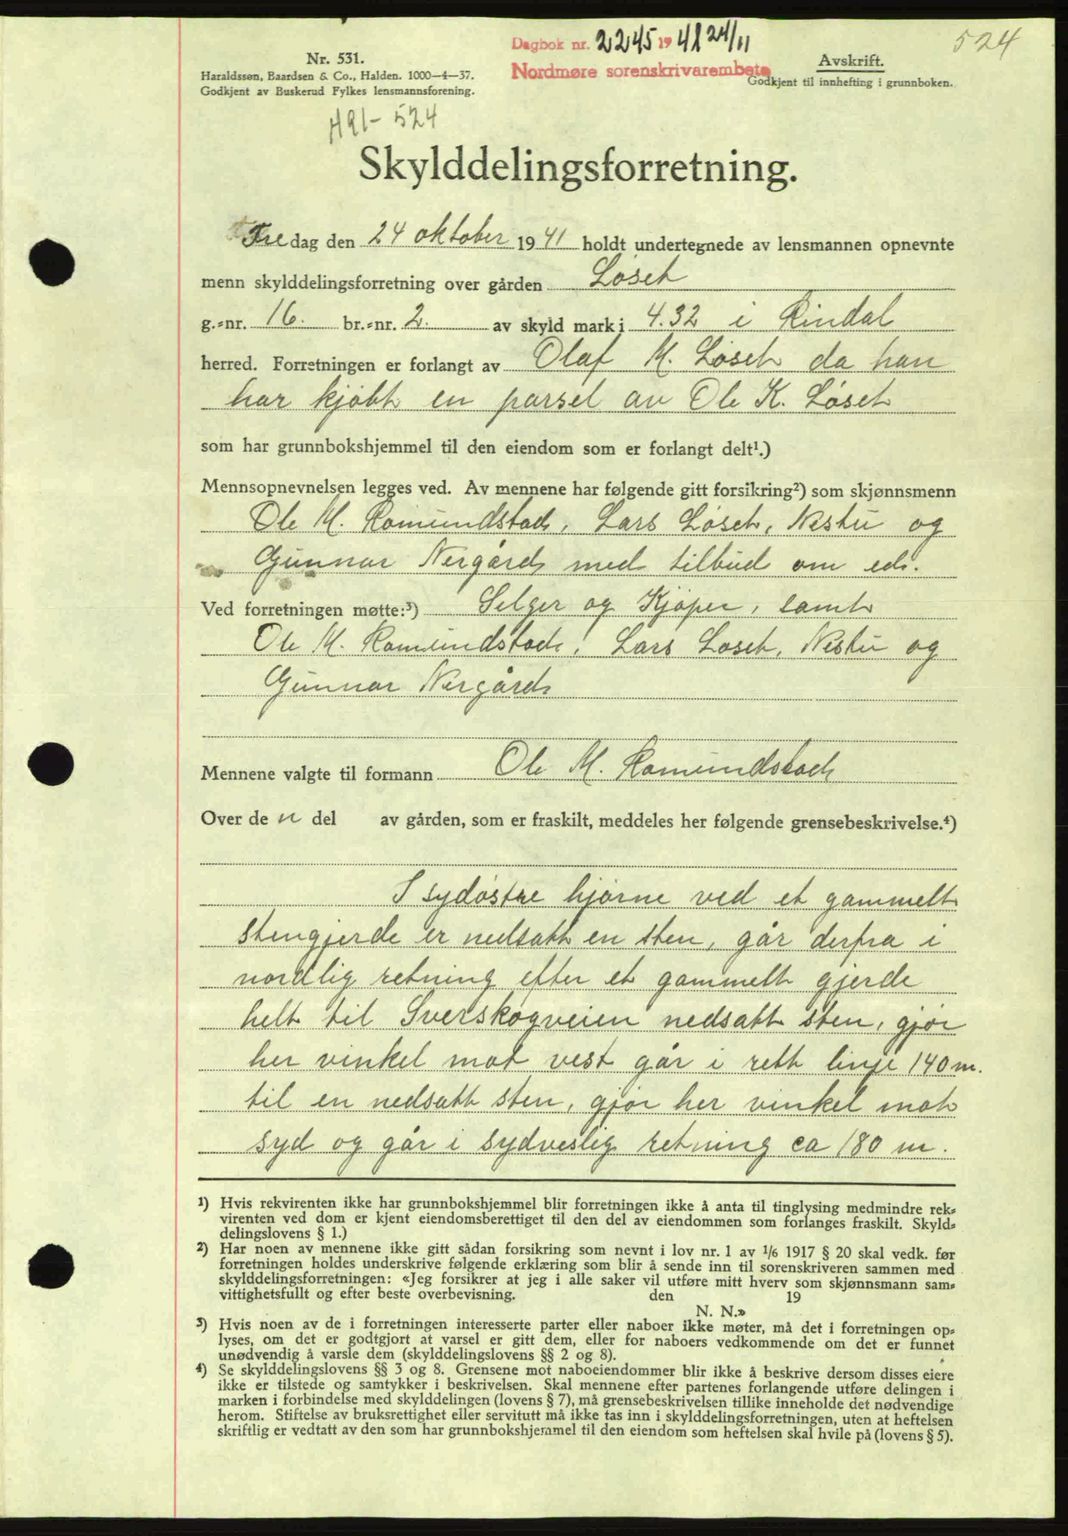 Dagbok nr. 2245 1941 24/11
Nordmøre sorenskrivarembete
524
Nr. 531.
Haraldssøn, Baardsen & Co., Halden. 1000—4—37.
Godkjent av Buskerud Fylkes lensmannsforening.
Avskrift.
Godkjent til innhefting i grunnboken.
H91- 524
Skylddelingsforretning.
Fredag den 24 oktober 1941 holdt undertegnede av lensmannen opnevnte
menn skylddelingsforretning over gården Løset
g.-nr. 16. br.-nr. 2. av skyld mark i 4.32 i Rindal
herred. Forretningen er forlangt av Olaf M. Løset da han
har kjøbt en parsel av Ole K. Løset
som har grunnbokshjemmel til den eiendom som er forlangt delt¹.)
Mennsopnevnelsen legges ved. Av mennene har følgende gitt forsikring²) som skjønnsmenn
Ole M. Romundstad, Lars Løset, Nestu og
Gunnar Nergård med tilbud om ed.
Ved forretningen møtte:³) Selger og Kjøper, samt
Ole M. Romundstad, Lars Løset, Nestu og
Gunnar Nergård
Mennene valgte til formann Ole M. Romundstad
Over de n del av gården, som er fraskilt, meddeles her følgende grensebeskrivelse.⁴)
I sydøstre hjørne ved et gammelt
stengjerde er nedsatt en sten, går derfra i
nordlig retning efter et gammelt gjerde
helt til Sverskogveien nedsatt sten, gjør
her vinkel mot vest går i rett linje 140 m.
til en nedsatt sten, gjør her vinkel mot
syd og går i sydvestlig retning ca 180 m.
¹) Hvis rekvirenten ikke har grunnbokshjemmel blir forretningen ikke å anta til tinglysing medmindre rek-
virenten ved dom er kjent eiendomsberettiget til den del av eiendommen som forlanges fraskilt. Skyld-
delingslovens § 1.)
²) Har noen av mennene ikke gitt sådan forsikring som nevnt i lov nr. 1 av 1/6 1917 § 20 skal vedk. før
forretningen holdes underskrive følgende erklæring som blir å sende inn til sorenskriveren sammen med
skylddelingsforretningen: «Jeg forsikrer at jeg i alle saker vil utføre mitt hverv som skjønnsmann sam-
vittighetsfullt og efter beste overbevisning. den 19
N. N.»
³) Hvis noen av de i forretningen interesserte parter eller naboer ikke møter, må det i forretningen op-
lyses, om det er godtgjort at varsel er gitt dem, eller for naboers vedkommende om det er funnet
unødvendig å varsle dem (skylddelingslovens §§ 2 og 8).
⁴) Se skylddelingslovens §§ 3 og 8. Grensene mot naboeiendommer blir ikke å beskrive dersom disses eiere
ikke er tilstede og samtykker i beskrivelsen. Skal mennene efter partenes forlangende utføre delingen i
marken i forbindelse med skylddelingen (lovens § 7), må grensebeskrivelsen tillike inneholde det nødvendige
herom. Stiftelse av bruksrettighet eller servitutt må ikke tas inn i skylddelingsforretningen, uten at heftelsen
skriftlig er vedtatt av den som har grunnbokshjemmel til den eiendom som heftelsen skal hvile på (lovens § 5).